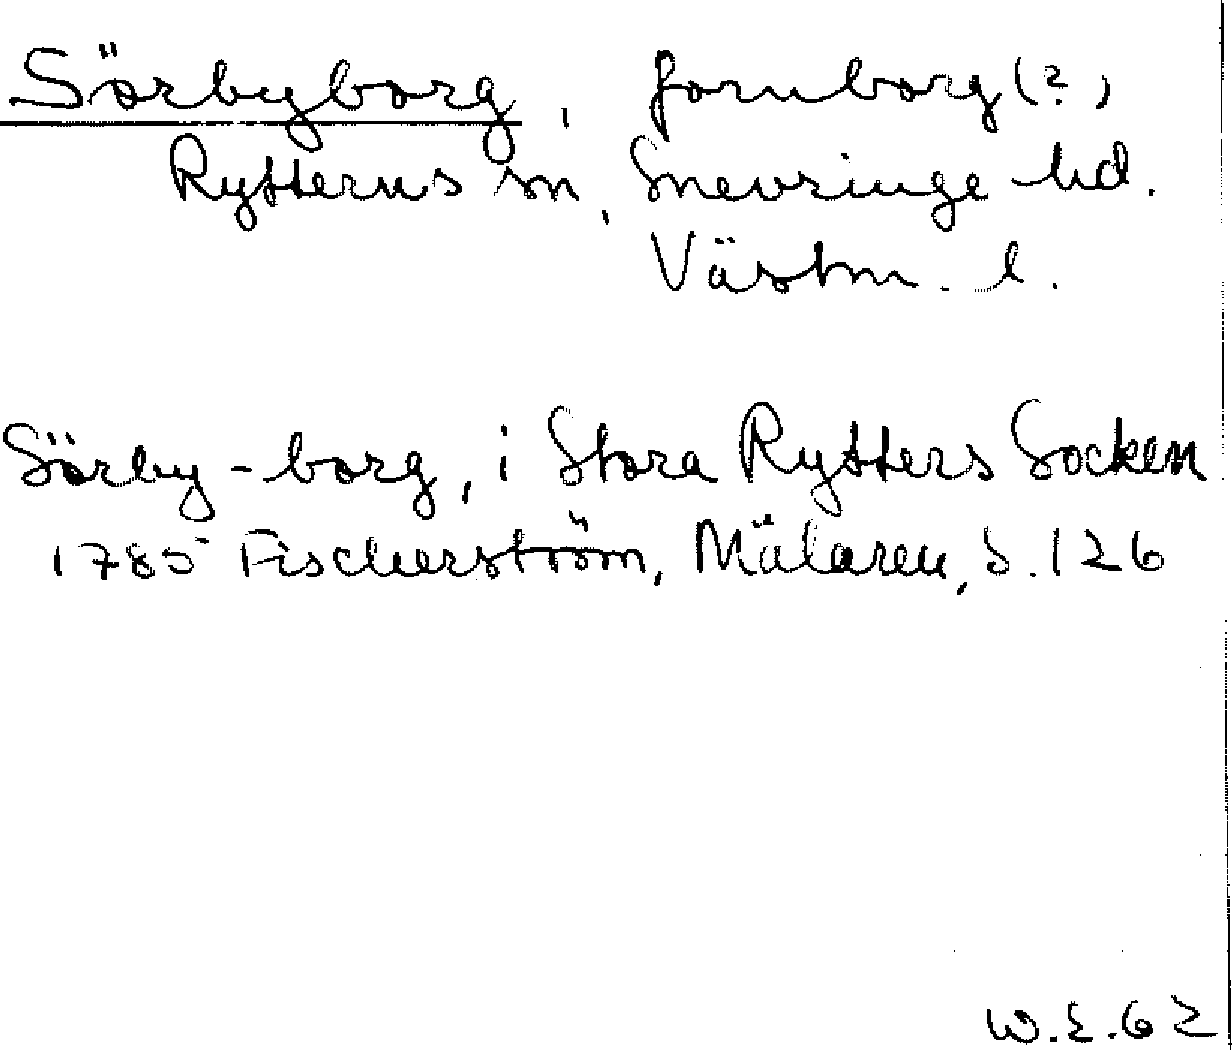 Sörbyborg, fornborg (?)
Rytterns sn, Snevringe hd.
Västm. l.
Sörby-borg, i Stora Rytters Socken
1785 Fischerström, Mälaren, S. 126
W.E. 62